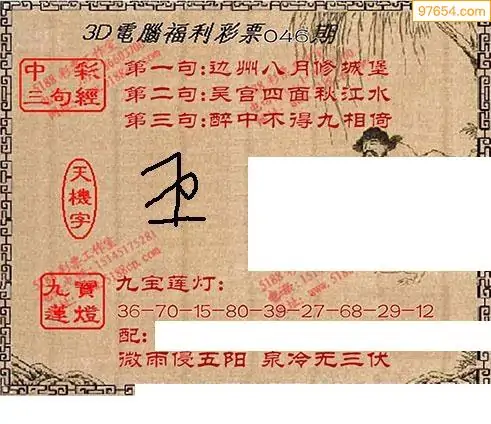 97654.com
3D電腦福利彩票046期
中彩
三句經
第一句:边州八月修城堡
第二句:吴宫四面秋江水
第三句:醉中不得九相倚
天機字
九寶
蓮燈
九宝莲灯:
36-70-15-80-39-27-68-29-12
配:
微雨侵五阳 泉冷无三伏